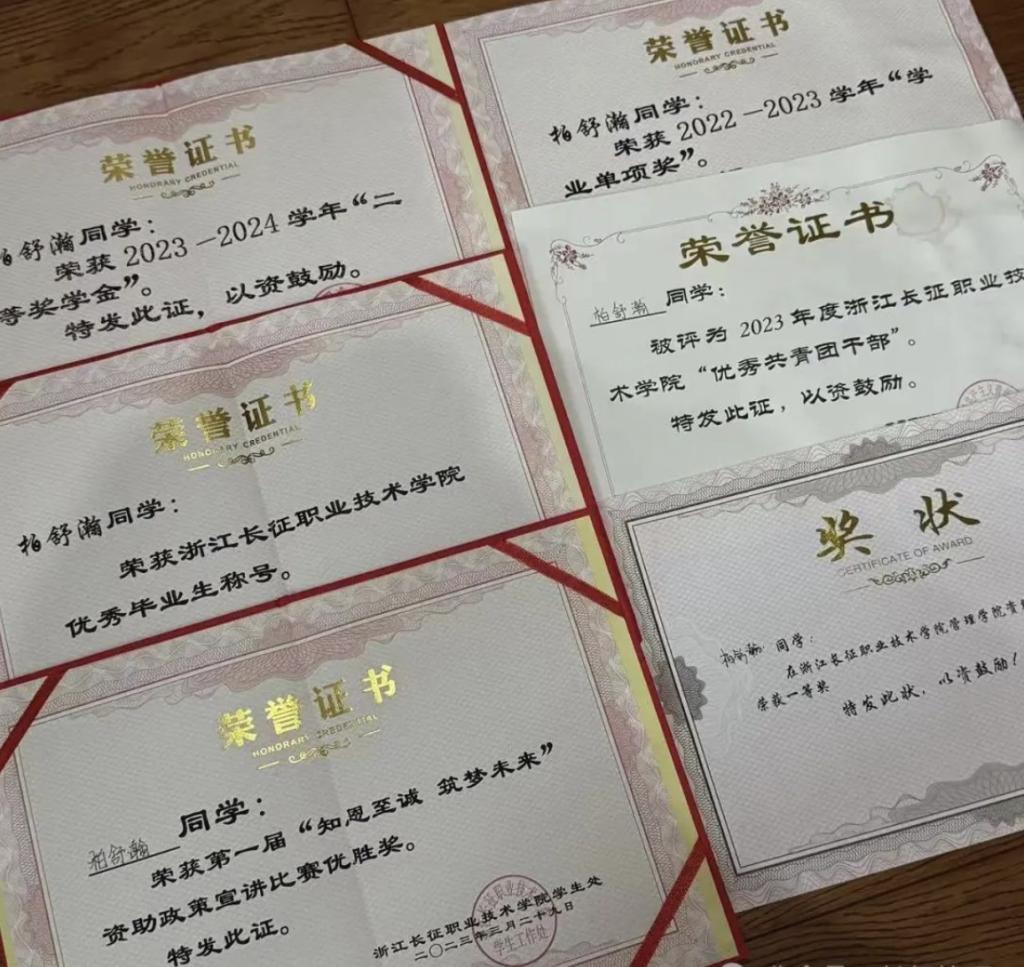 荣誉证书
HONORARY CREDENTIAL
柏舒瀚同学：
荣获 2023－2024 学年“二
等奖学金”。
特发此证，以资鼓励。
荣誉证书
HONORARY CREDENTIAL
柏舒瀚同学：
荣获 2022－2023 学年“学
业单项奖”。
荣誉证书
柏舒瀚 同学：
被评为 2023 年度浙江长征职业技
术学院“优秀共青团干部”。
特发此证，以资鼓励。
荣誉证书
HONORARY CREDENTIAL
柏舒瀚同学：
荣获浙江长征职业技术学院
优秀毕业生称号。
奖 状
CERTIFICATE OF AWARD
柏舒瀚 同学：
在浙江长征职业技术学院管理学院
荣获一等奖
特发此状，以资鼓励！
荣誉证书
HONORARY CREDENTIAL
柏舒瀚 同学：
荣获第一届“知恩至诚 筑梦未来”
资助政策宣讲比赛优胜奖。
特发此证。
浙江长征职业技术学院学生处
二〇二三年三月二十九日
学生工作处